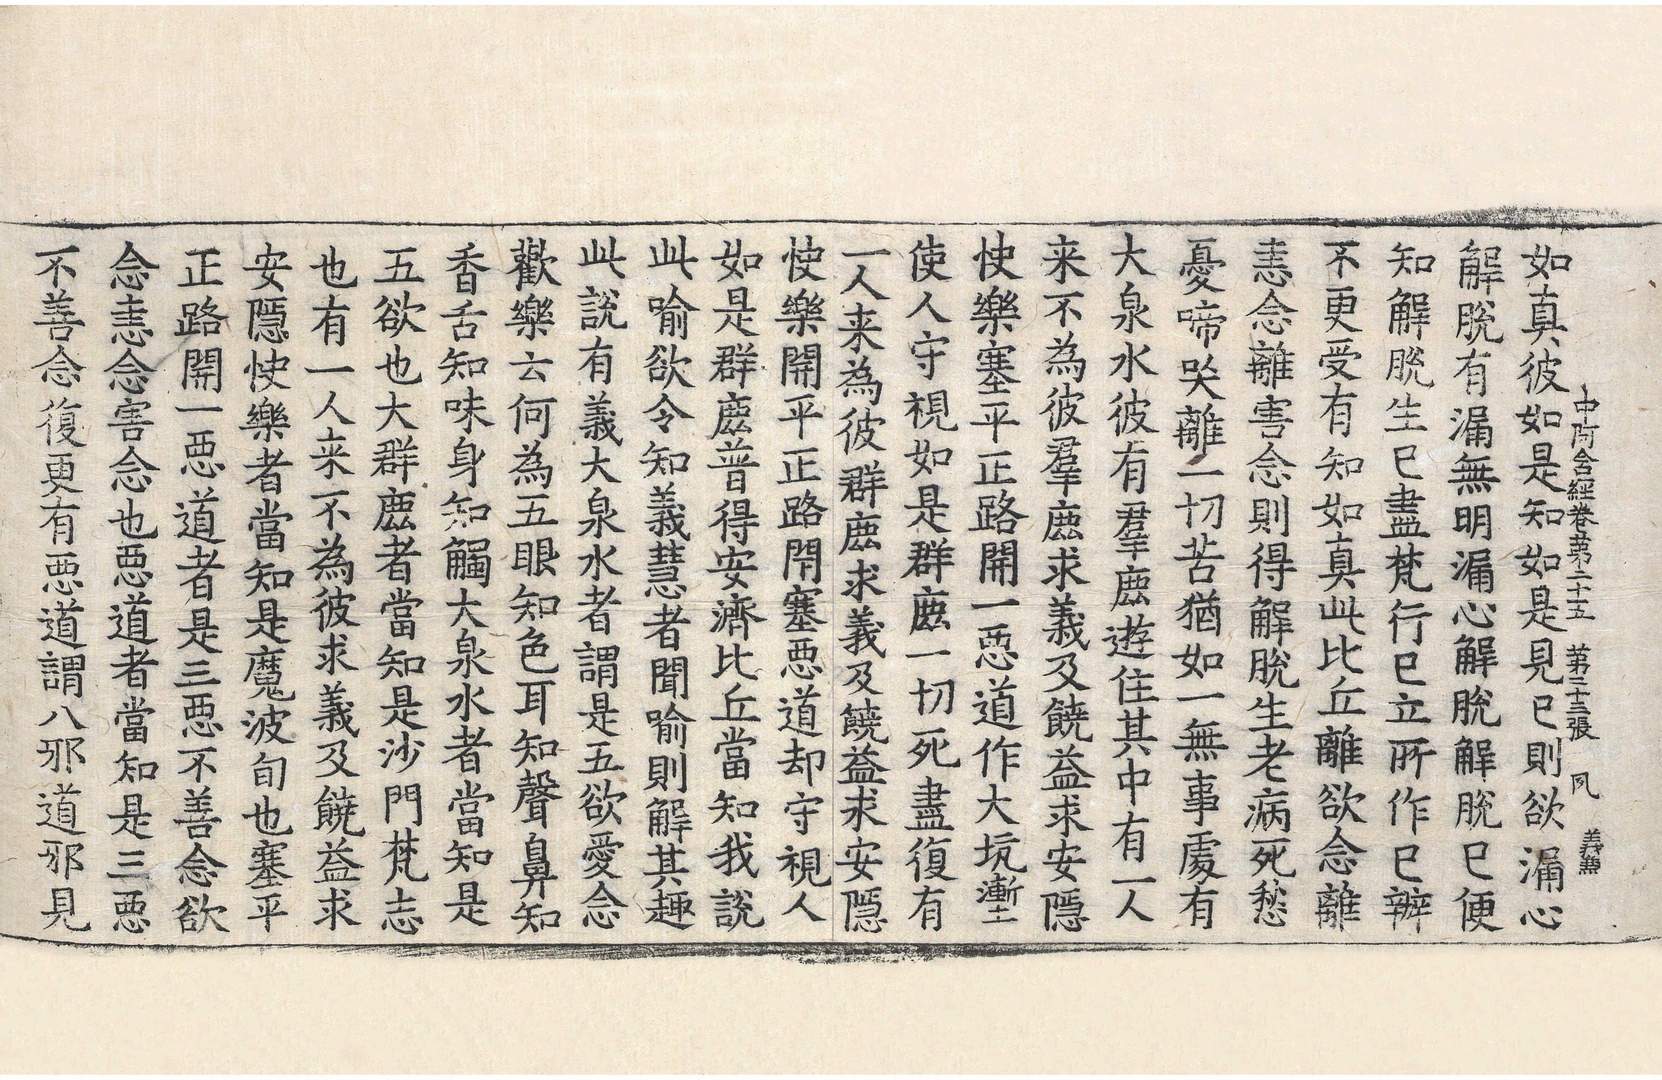 中阿含經卷第二十五　第二十三張　夙　義㷼
如真彼如是知如是見已則欲漏心
解脫有漏無明漏心解脫解脫已便
知解脫生已盡梵行已立所作已辦
不更受有知如真此比丘離欲念離
恚念離害念則得解脫生老病死愁
憂啼哭離一切苦猶如一無事處有
大泉水彼有羣鹿遊住其中有一人
来不為彼羣鹿求義及饒益求安隱
快樂塞平正路開一惡道作大坑壍
使人守視如是群鹿一切死盡復有
一人来為彼群鹿求義及饒益求安隱
快樂開平正路閇塞惡道却守視人
如是群鹿普得安濟比丘當知我說
此喻欲令知義慧者聞喻則解其趣
此說有義大泉水者謂是五欲愛念
歡樂云何為五眼知色耳知聲鼻知
香舌知味身知觸大泉水者當知是
五欲也大群鹿者當知是沙門梵志
也有一人来不為彼求義及饒益求
安隱快樂者當知是魔波旬也塞平
正路開一惡道者是三惡不善念欲
念恚念害念也惡道者當知是三惡
不善念復更有惡道謂八邪道邪見